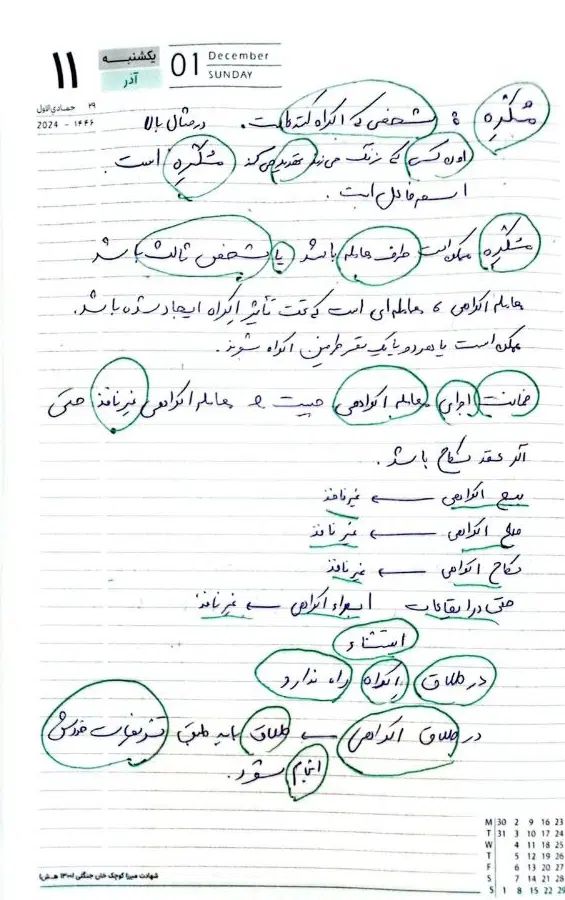 ۱۱
یکشنبه
آذر
01
December
SUNDAY
۲۹ جمادی‌الاول
2024 - ۱۴۴۶
مُکْرِه : شخصی که اکراه کننده است. در مثال بالا
اون کسی که زنگ می‌زند تهدید می‌کند مُکْرِه است.
اسم فاعل است.
مُکْرِه ممکن است طرف معامله باشد یا شخص ثالث باشد
معامله اکراهی ، معامله‌ای است که تحت تأثیر اکراه ایجاد شده باشد.
ممکن است یا هر دو یا یک نفر طرفین اکراه شوند.
ضمانت اجرای معامله اکراهی چیست ؟ معامله اکراهی غیرنافذ حتی
اگر عقد نکاح باشد.
بیع اکراهی ← غیرنافذ
صلح اکراهی ← غیرنافذ
نکاح اکراهی ← غیرنافذ
حتی در ایقاعات ابراء اکراهی ← غیرنافذ
استثناء
در طلاق اکراه راه ندارد
در طلاق اکراهی ← طلاق باید طبق تشریفات خودش
انجام شود.
M 30 2 9 16 23
T 31 3 10 17 24
W 4 11 18 25
T 5 12 19 26
F 6 13 20 27
S 7 14 21 28
S 1 8 15 22 29
شهادت میرزا کوچک خان جنگلی (۱۳۰۰ هـ.ش)